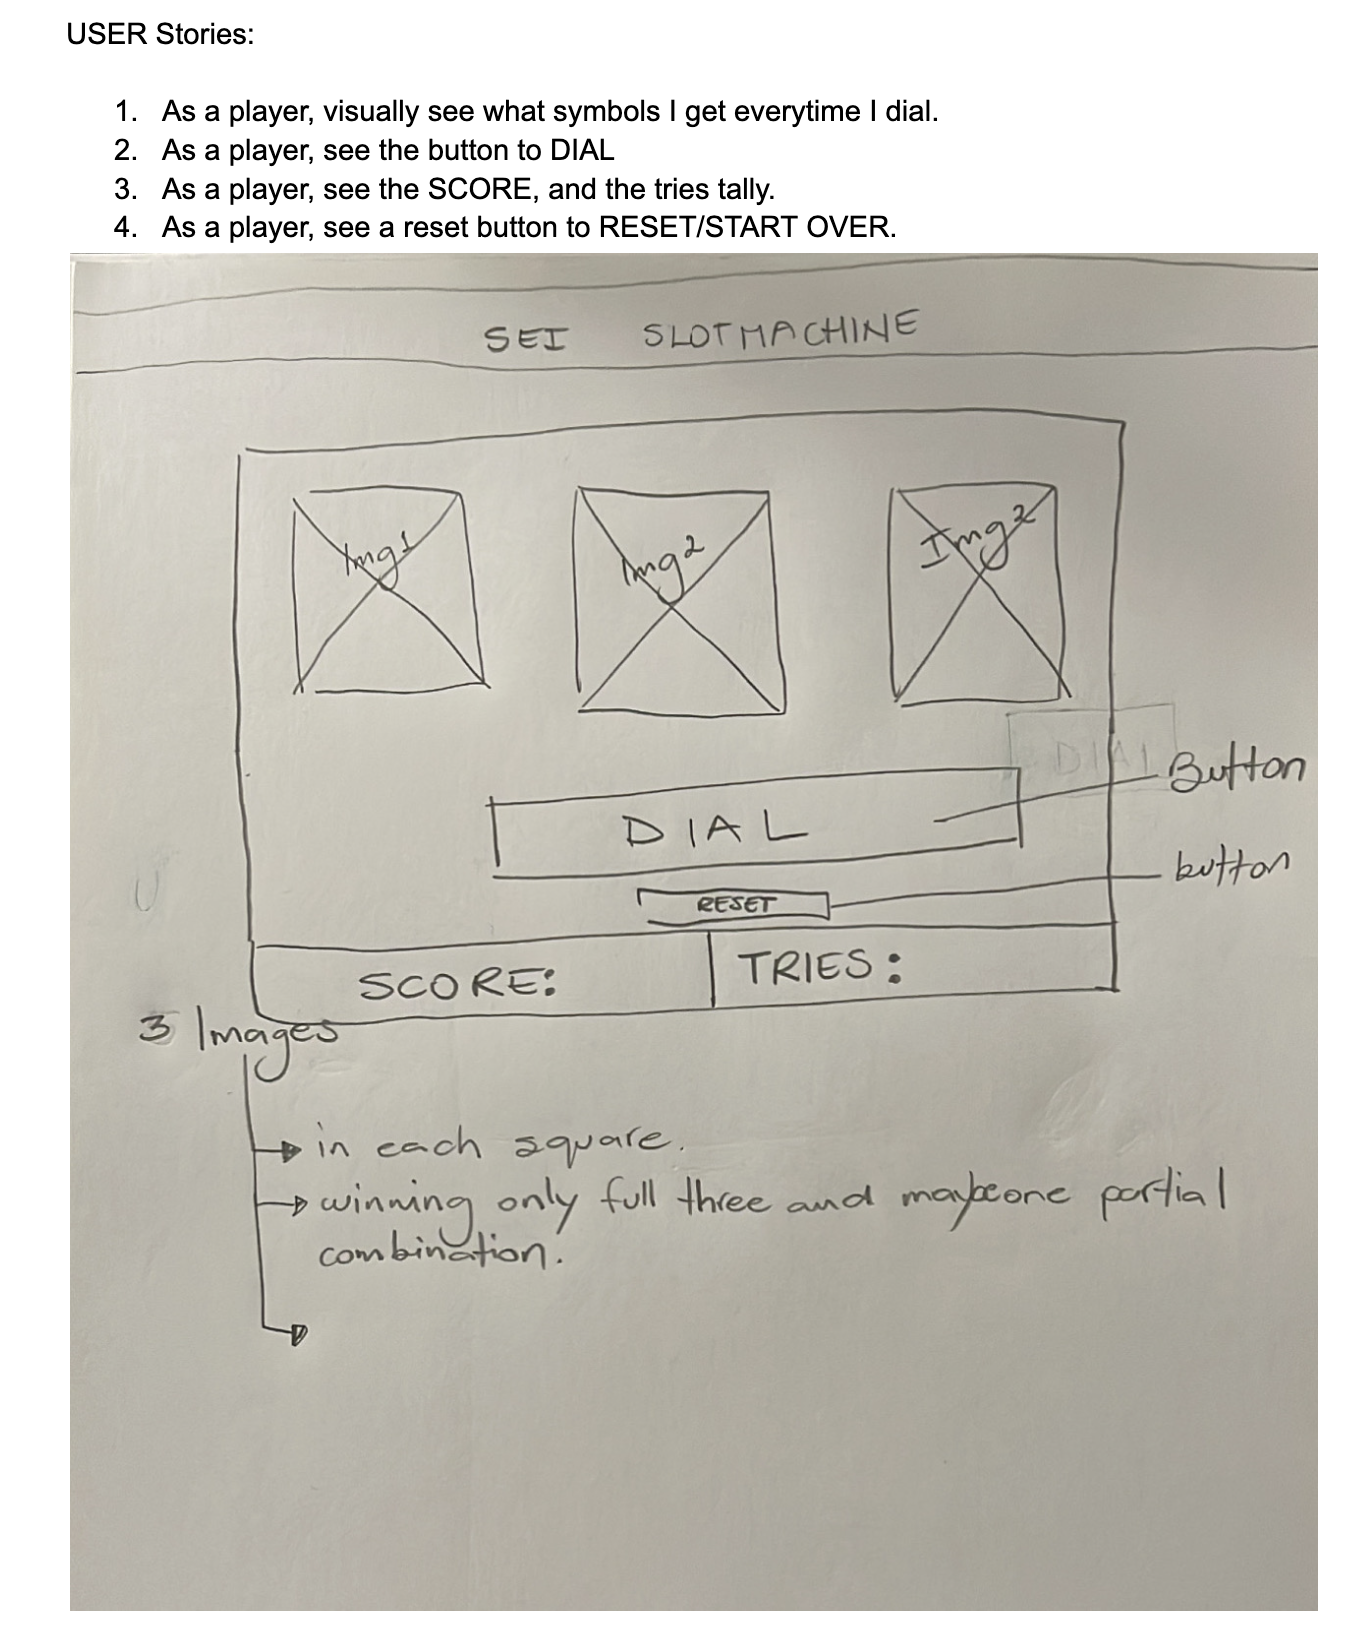 USER Stories:
1. As a player, visually see what symbols I get everytime I dial.
2. As a player, see the button to DIAL
3. As a player, see the SCORE, and the tries tally.
4. As a player, see a reset button to RESET/START OVER.
SEI SLOTMACHINE
Img1
Img2
Img2
DIAL
Button
DIAL
button
RESET
SCORE:
TRIES:
3 Images
in each square.
winning only full three and maybe one partial
combination.